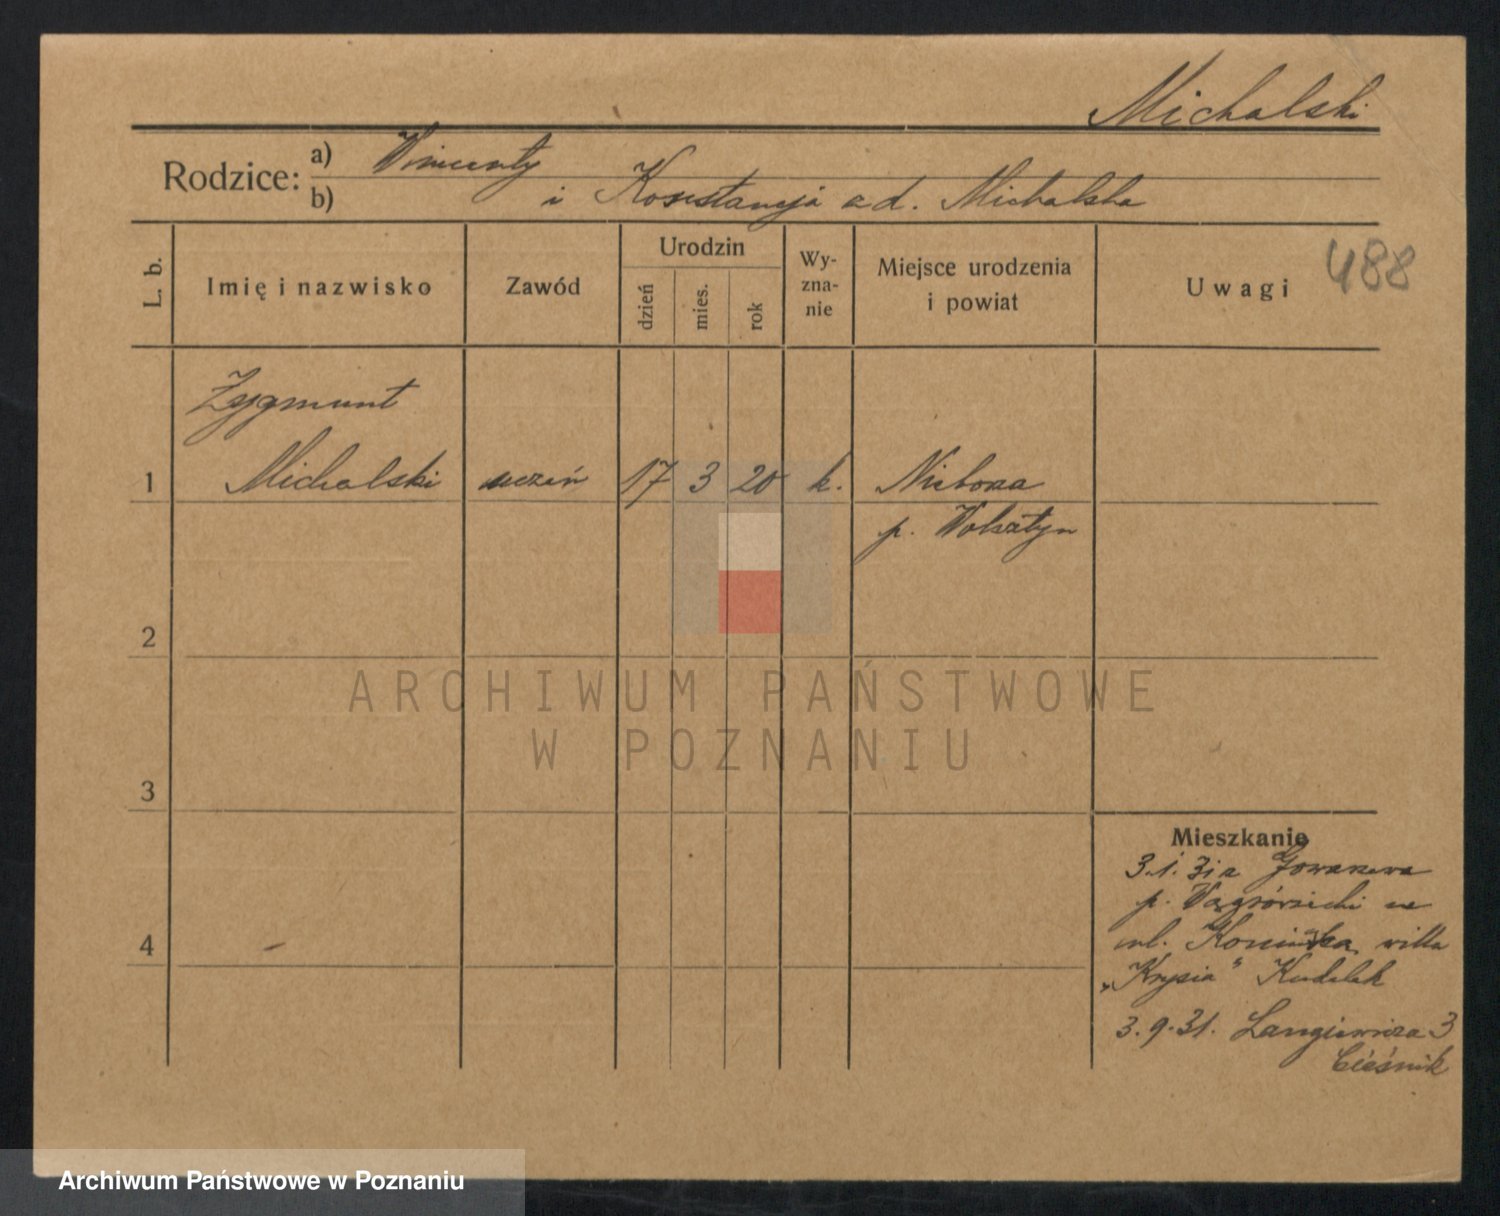 Michalski
Rodzice: a) Wincenty
b) i Konstancja a d. Michalska
488
L. b. Imię i nazwisko Zawód Urodzin dzień mies. rok Wy-zna-nie Miejsce urodzenia i powiat Uwagi
Zygmunt
1 Michalski uczeń 17 3 20 k.
p. Wolsztyn
2
ARCHIWUM PAŃSTWOWE
W POZNANIU
3
Mieszkanie
3.1.31 z
p. Wągrówiecki na
ul. willa
4
„Krysia"
3.9.31. Langiewicza 3
Cieśnik
Archiwum Państwowe w Poznaniu